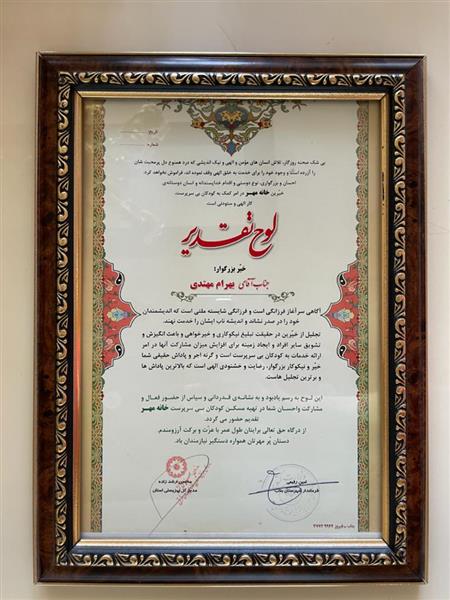 تاریخ
شماره
بی شک صحنه روزگار، تلاش انسان های مؤمن و الهی و نیک اندیشی که درد همنوع دل پرمحبت شان
را آزرده است و وجود خود را برای خدمت به خلق الهی وقف نموده اند، فراموش نخواهد کرد.
احسان و بزرگواری، نوع دوستی و اقدام خداپسندانه و انسان دوستانه‌ی
خیرین خانه مهر در امر کمک به کودکان بی سرپرست،
کار الهی و ستودنی است.
لوح تقدیر
خیّر بزرگوار؛
جناب آقای بهرام مهندی
آگاهی سرآغاز فرزانگی است و فرزانگی شایسته ملتی است که اندیشمندان
خود را در صدر نشاند و اندیشه ناب ایشان را خدمت نهند.
تجلیل از خیّرین در حقیقت تبلیغ نیکوکاری و خیرخواهی و باعث انگیزش و
تشویق سایر افراد و ایجاد زمینه برای افزایش میزان مشارکت آنها در امر
ارائه خدمات به کودکان بی سرپرست است و گرنه اجر و پاداش حقیقی شما
خیّر و نیکوکار بزرگوار، رضایت و خشنودی الهی است که بالاترین پاداش ها
و برترین تجلیل هاست.
این لوح به رسم یادبود و به نشانه‌ی قدردانی و سپاس از حضور فعال و
مشارکت و احسان شما در تهیه مسکن کودکان بی سرپرست خانه مهر
تقدیم حضور می گردد.
از درگاه حق تعالی برایتان طول عمر با عزّت و برکت آرزومندم.
دستان پُر مهرتان همواره دستگیر نیازمندان باد.
مدیر کل بهزیستی استان
فرماندار شهرستان بناب